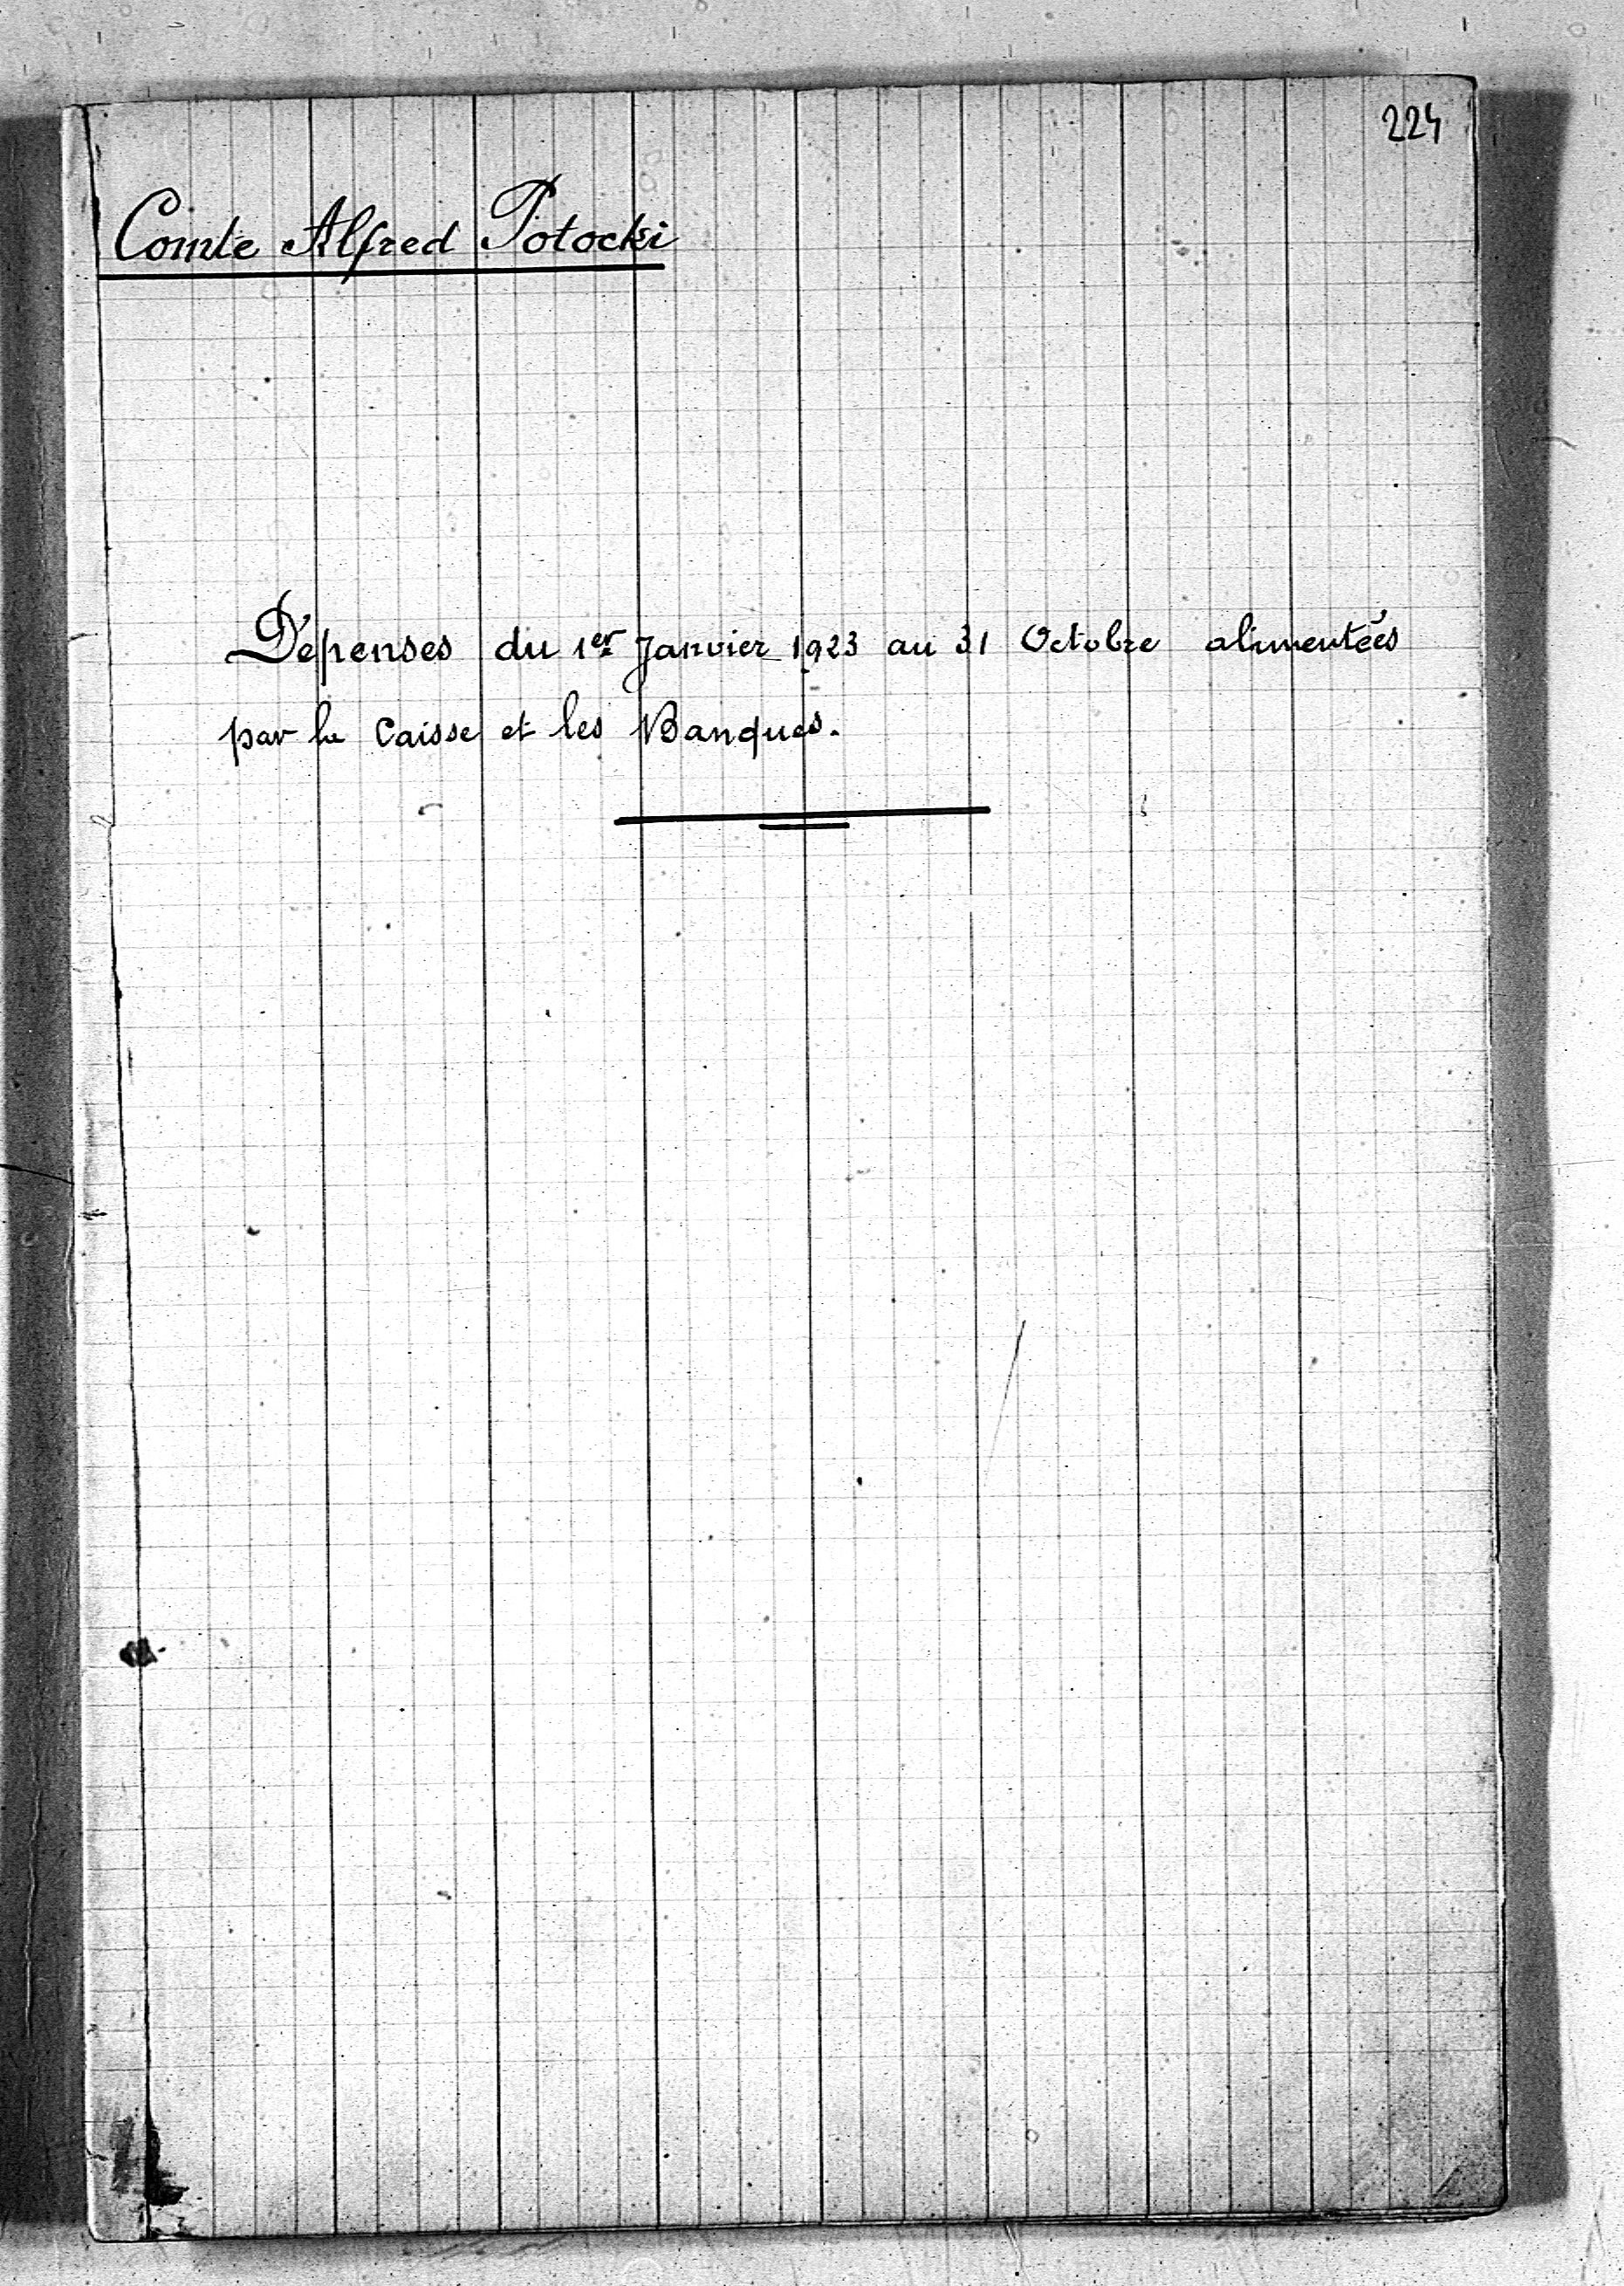 224
Comte Alfred Potocki
Dépenses du 1er Janvier 1923 au 31 Octobre alimentées
par la Caisse et les Banques.